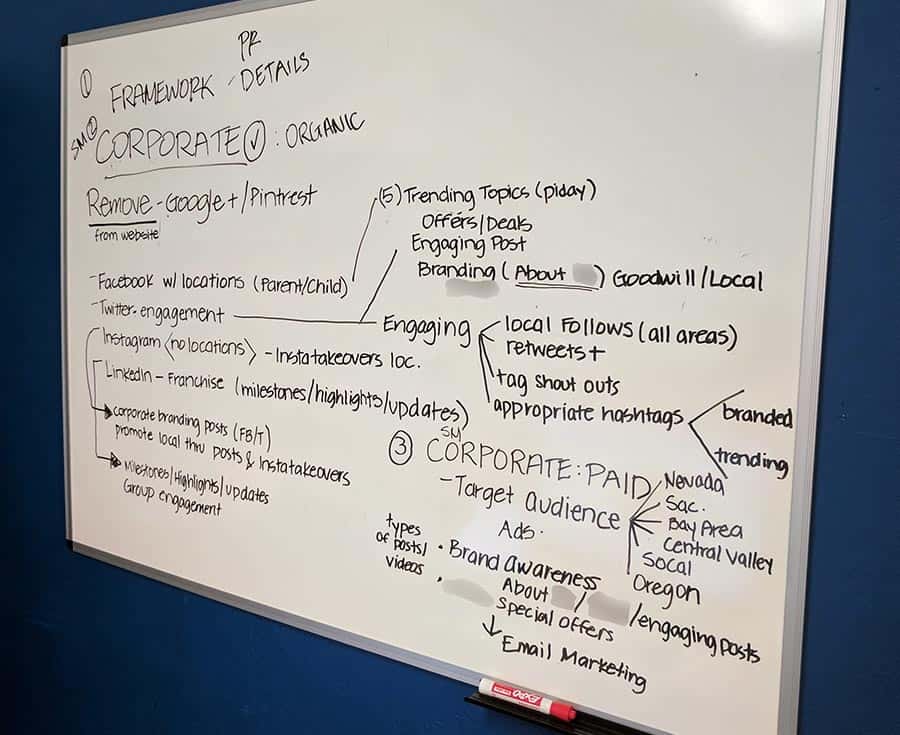 PR
① FRAMEWORK - DETAILS
SM ② CORPORATE ✓ : ORGANIC
Remove - Google+/Pintrest
from website
(5) Trending Topics (piday)
Offers/Deals
Engaging Post
Branding (About ) Goodwill/Local
- Facebook w/ locations (Parent/Child)
- Twitter - engagement
Engaging
local Follows (all areas)
retweets +
tag shout outs
appropriate hashtags
branded
trending
Instagram <no locations> - Instatakeovers loc.
LinkedIn - Franchise (milestones/highlights/updates)
corporate branding posts (FB/T)
promote local thru posts & Instatakeovers
Milestones/Highlights/updates
Group engagement
SM
③ CORPORATE: PAID
- Target audience
Nevada
Sac.
Bay Area
Central Valley
Socal
Oregon
Ads.
types
of posts/
videos
· Brand Awareness
About / /engaging posts
· special offers
↓ Email Marketing
EXPO